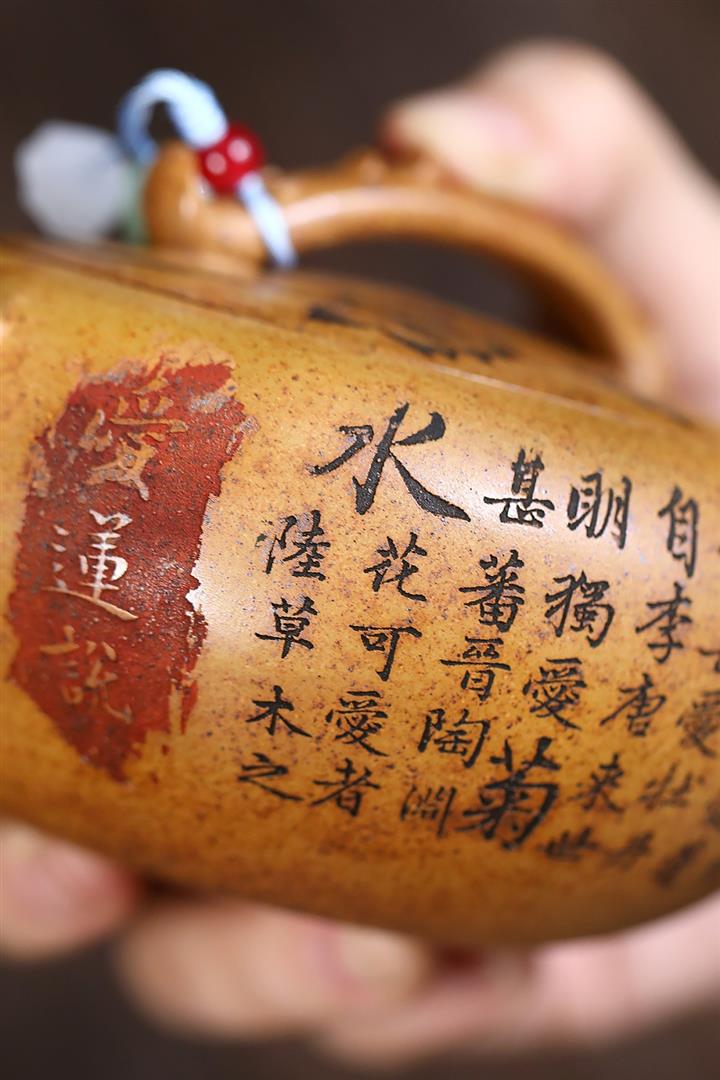 愛蓮說
水陸草木之
花可愛者
甚蕃晋陶淵
明獨愛菊
自李唐来世
愛牡丹